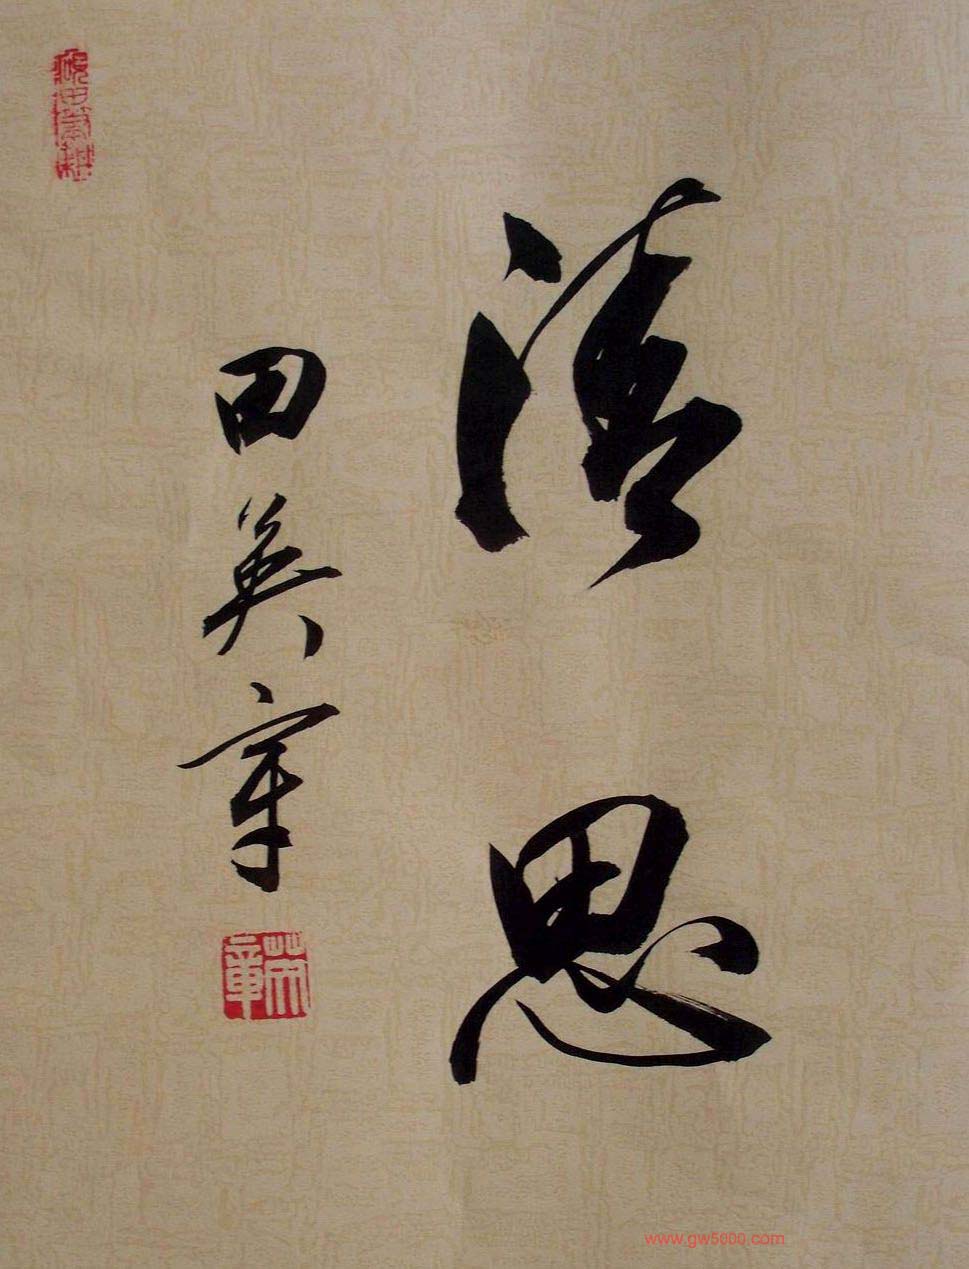 清思
田英章
英章
www.gw5000.com